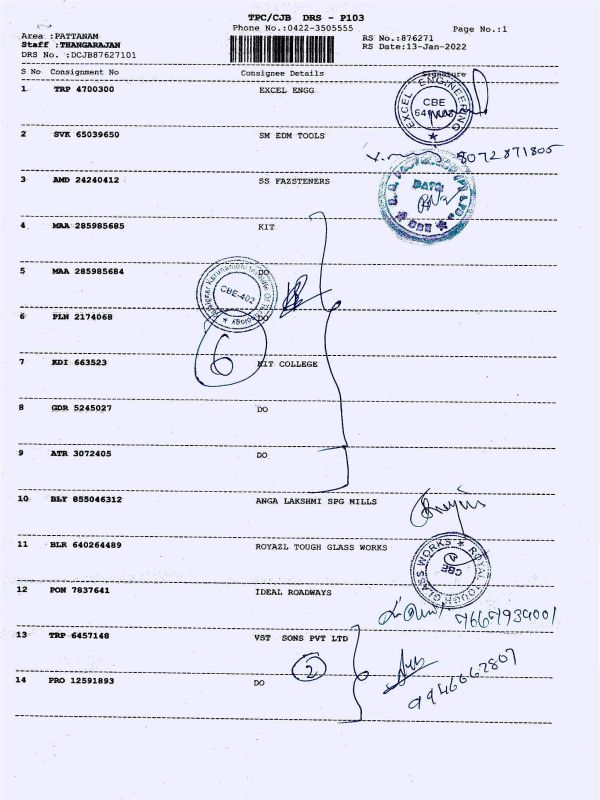 TPC/CJB DRS - P103
Phone No.:0422-3505555
Page No.:1
Area :PATTANAM
RS No.:876271
Staff :THANGARAJAN
RS Date:13-Jan-2022
DRS No. :DCJB87627101
S No Consignment No Consignee Details Signature
1 TRP 4700300 EXCEL ENGG
EXCEL ENGINEERING
CBE
2 SVK 65039650 SM EDM TOOLS
8072871805
3 AMD 24240412 SS FAZSTENERS
CBE
4 MAA 285985685 KIT
5 MAA 285985684 DO
CBE-402
6 PLN 2174068 DO
6
7 KDI 663523 KIT COLLEGE
8 GDR 5245027 DO
9 ATR 3072405 DO
10 BLY 855046312 ANGA LAKSHMI SPG MILLS
11 BLR 640264489 ROYAZL TOUGH GLASS WORKS
ROYAL TOUGH GLASS WORKS
CBE
12 PON 7837641 IDEAL ROADWAYS
7667939001
13 TRP 6457148 VST SONS PVT LTD
2
14 PRO 12591893 DO
9946662807